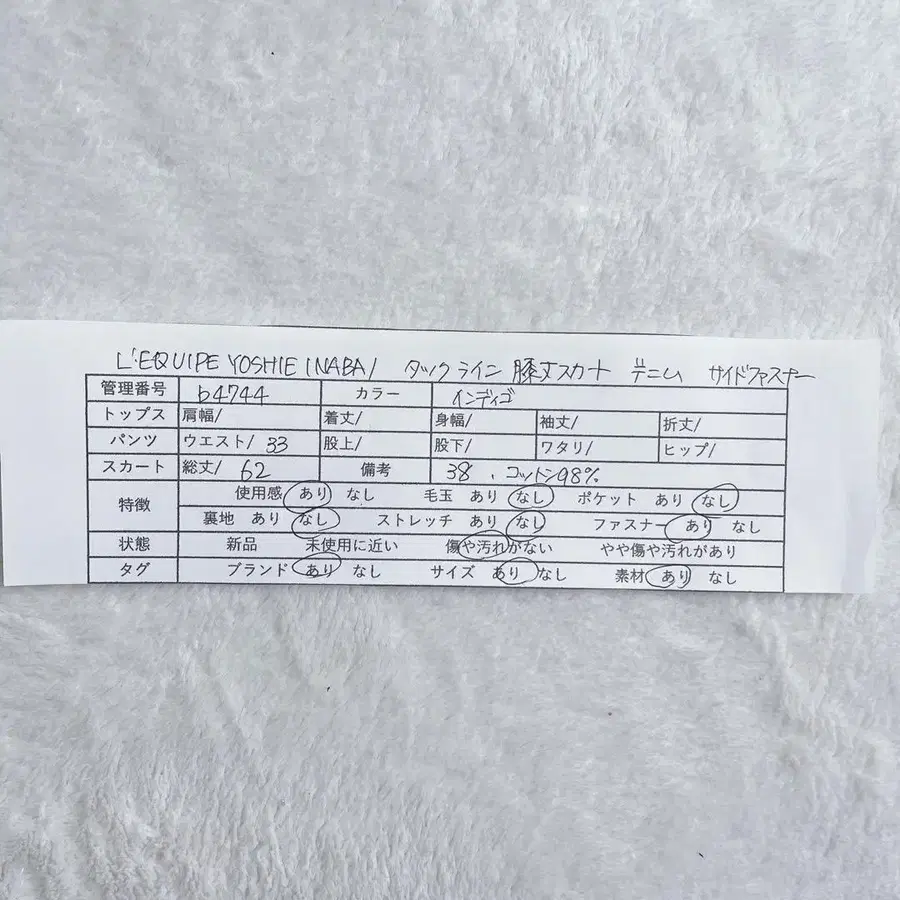 L'EQUIPE YOSHIE INABA/ タックライン 膝丈スカート デニム サイドファスナー
管理番号 b4744 カラー インディゴ
トップス 肩幅/ 着丈/ 身幅/ 袖丈/ 折丈/
パンツ ウエスト/ 33 股上/ 股下/ ワタリ/ ヒップ/
スカート 総丈/ 62 備考 38、コットン98%
特徴 使用感 あり なし 毛玉 あり なし ポケット あり なし
裏地 あり なし ストレッチ あり なし ファスナー あり なし
状態 新品 未使用に近い 傷や汚れがない やや傷や汚れがあり
タグ ブランド あり なし サイズ あり なし 素材 あり なし